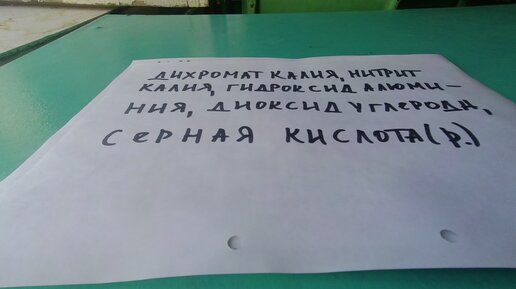 ДИХРОМАТ КАЛИЯ, НИТРИТ
КАЛИЯ, ГИДРОКСИД АЛЮМИ-
НИЯ, ДИОКСИД УГЛЕРОДА,
СЕРНАЯ КИСЛОТА(р.)